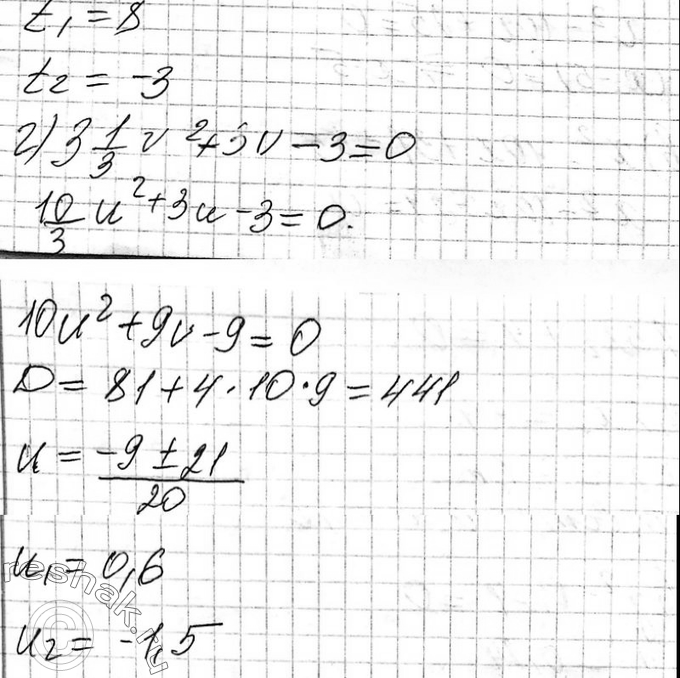 t₁ = 8
t₂ = -3
г) 3 1/3 u² + 3u - 3 = 0
10/3 u² + 3u - 3 = 0.
10u² + 9u - 9 = 0
D = 81 + 4·10·9 = 441
u = (-9 ± 21)/20
u₁ = 0,6
u₂ = -1,5
reshak.ru